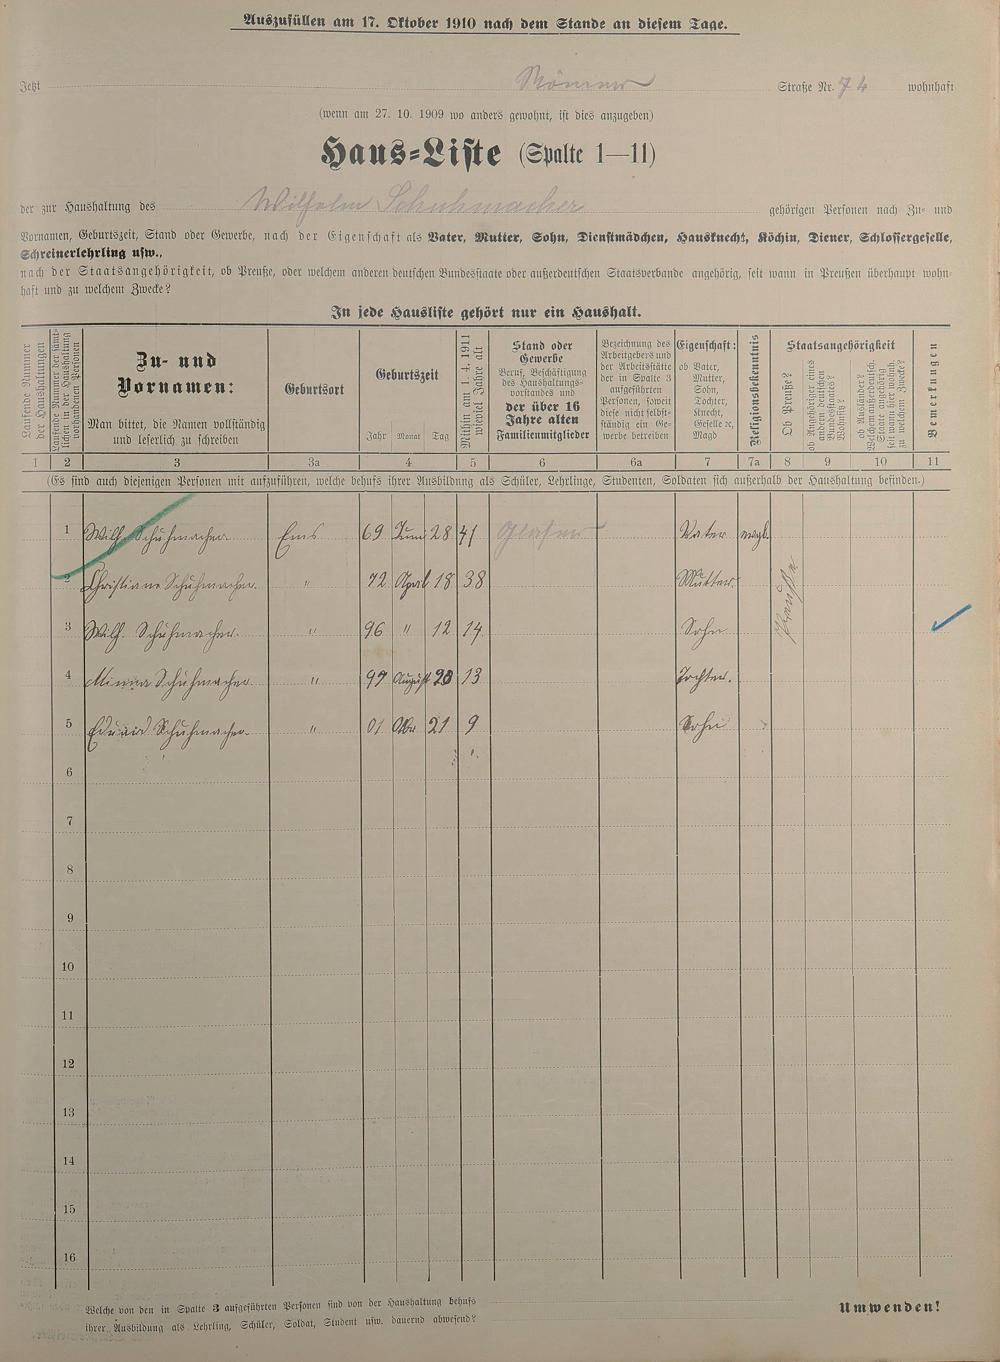 Auszufüllen am 17. Oktober 1910 nach dem Stande an diesem Tage.
Jetzt Römer Straße Nr. 74 wohnhaft
(wenn am 27. 10. 1909 wo anders gewohnt, ist dies anzugeben)
Haus-Liste (Spalte 1—11)
der zur Haushaltung des Wilhelm Schuhmacher gehörigen Personen nach Zu- und
Vornamen, Geburtszeit, Stand oder Gewerbe, nach der Eigenschaft als Vater, Mutter, Sohn, Dienstmädchen, Hausknecht, Köchin, Diener, Schlossergeselle,
Schreinerlehrling usw.,
nach der Staatsangehörigkeit, ob Preuße, oder welchem anderen deutschen Bundesstaate oder außerdeutschen Staatsverbande angehörig, seit wann in Preußen überhaupt wohn-
haft und zu welchem Zwecke?
In jede Hausliste gehört nur ein Haushalt.
Laufende Nummer
der Haushaltungen
Laufende Nummer der sämt-
lichen in der Haushaltung
vorhandenen Personen
Zu- und
Vornamen:
Man bittet, die Namen vollständig
und leserlich zu schreiben
Geburtsort
Geburtszeit
Jahr Monat Tag
Mithin am 1. 4. 1911
wieviel Jahre alt
Stand oder
Gewerbe
Beruf, Beschäftigung
des Haushaltungs-
vorstandes und
der über 16
Jahre alten
Familienmitglieder
Bezeichnung des
Arbeitgebers und
der Arbeitsstätte
der in Spalte 3
aufgeführten
Personen, soweit
diese nicht selbst-
ständig ein Ge-
werbe betreiben
Eigenschaft:
ob Vater,
Mutter,
Sohn,
Tochter,
Knecht,
Geselle ec,
Magd
Religionsbekenntnis
Staatsangehörigkeit
Ob Preuße?
ob Angehöriger eines
andern deutschen
Bundesstaates?
Wohnsitz?
ob Ausländer?
Welchem außerdeutsch.
Staate angehörig
seit wann hier wohnh.
zu welchem Zwecke?
Bemerkungen
1 2 3 3a 4 5 6 6a 7 7a 8 9 10 11
(Es sind auch diejenigen Personen mit aufzuführen, welche behufs ihrer Ausbildung als Schüler, Lehrlinge, Studenten, Soldaten sich außerhalb der Haushaltung befinden.)
1 Wilh. Schuhmacher Ems 69 Juni 28 41 Glaser Vater evgl.
2 Christiane Schuhmacher. " 72 April 18 38 Mutter. Preuße
3 Wilh. Schuhmacher. " 96 " 12 14 Sohn
4 Minna Schuhmacher. " 97 August 20 13 Tochter.
5 Eduard Schuhmacher. " 01 21 9 Sohn
6
7
8
9
10
11
12
13
14
15
16
Welche von den in Spalte 3 aufgeführten Personen sind von der Haushaltung behufs
ihrer Ausbildung als Lehrling, Schüler, Soldat, Student usw. dauernd abwesend?
Umwenden!